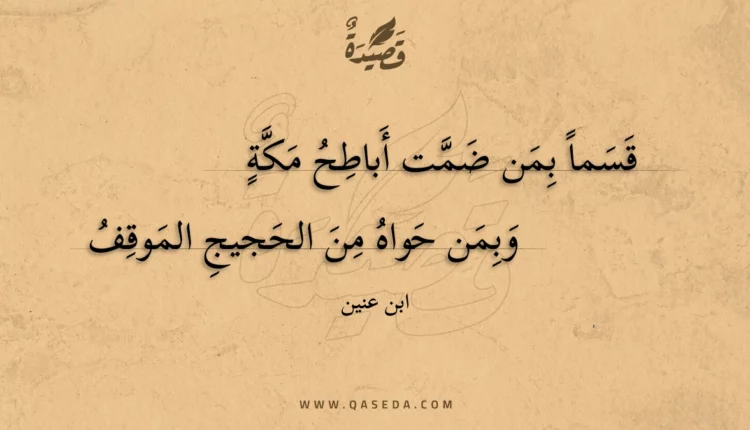 قَصِيْدَةٌ
قَسَماً بِمَن ضَمَّت أَباطِحُ مَكَّةٍ
وَبِمَن حَواهُ مِنَ الحَجيجِ المَوقِفُ
ابن عنين
WWW.QASEDA.COM